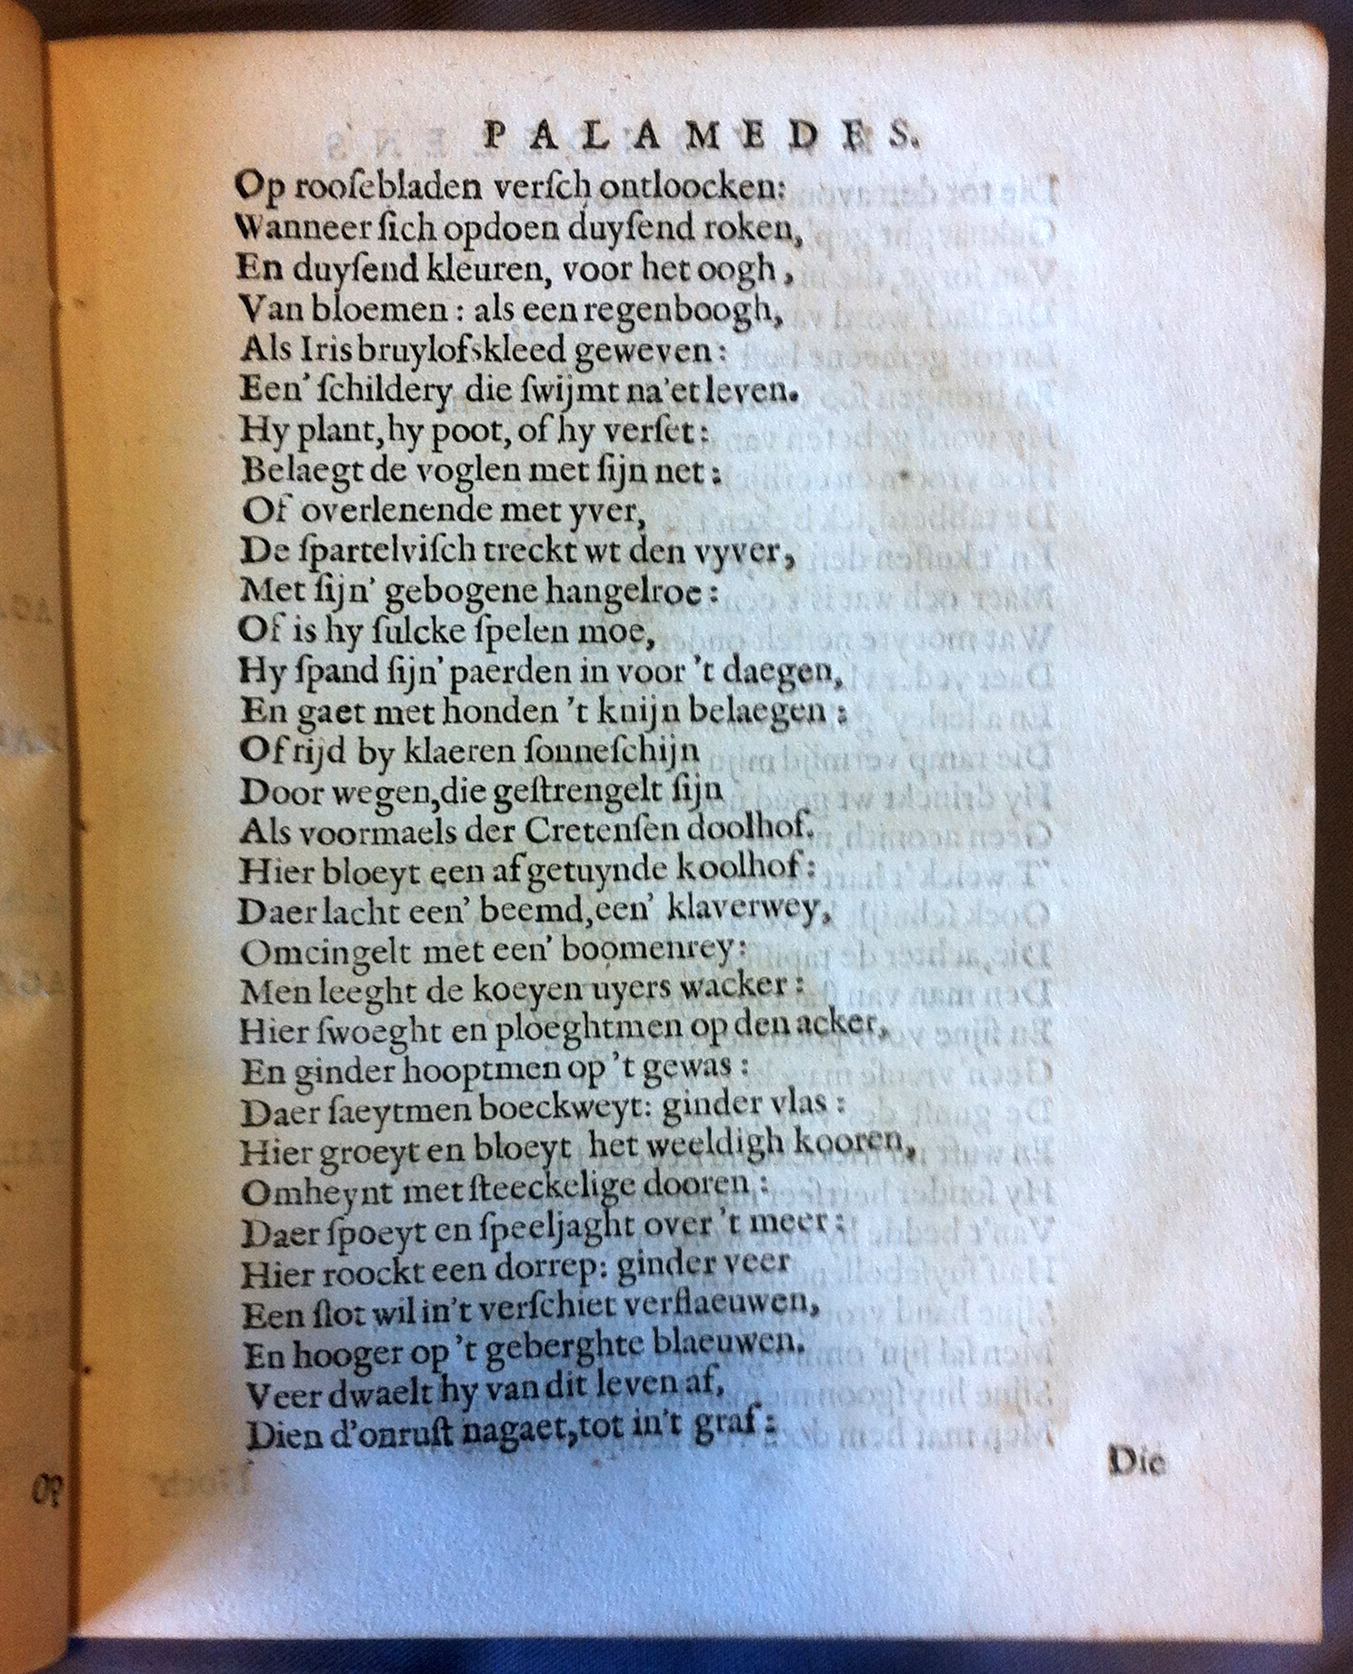 PALAMEDES.
Op rooſebladen verſch ontloocken:
Wanneer ſich opdoen duyſend roken,
En duyſend kleuren, voor het oogh,
Van bloemen: als een regenboogh,
Als Iris bruylofskleed geweven:
Een' ſchildery die ſwijmt na'et leven.
Hy plant, hy poot, of hy verſet:
Belaegt de voglen met ſijn net:
Of overlenende met yver,
De ſpartelviſch treckt wt den vyver,
Met ſijn' gebogene hangelroe:
Of is hy ſulcke ſpelen moe,
Hy ſpand ſijn' paerden in voor 't daegen,
En gaet met honden 't knijn belaegen:
Of rijd by klaeren ſonneſchijn
Door wegen, die geſtrengelt ſijn
Als voormaels der Cretenſen doolhof.
Hier bloeyt een afgetuynde koolhof:
Daer lacht een' beemd, een' klaverwey,
Omcingelt met een' boomenrey:
Men leeght de koeyen uyers wacker:
Hier ſwoeght en ploeghtmen op den acker,
En ginder hooptmen op 't gewas:
Daer ſaeytmen boeckweyt: ginder vlas:
Hier groeyt en bloeyt het weeldigh kooren,
Omheynt met ſteeckelige dooren:
Daer ſpoeyt en ſpeeljaght over 't meer:
Hier roockt een dorrep: ginder veer
Een ſlot wil in't verſchiet verflaeuwen,
En hooger op 't geberghte blaeuwen.
Veer dwaelt hy van dit leven af,
Dien d'onruſt nagaet, tot in't graf:
Die
op